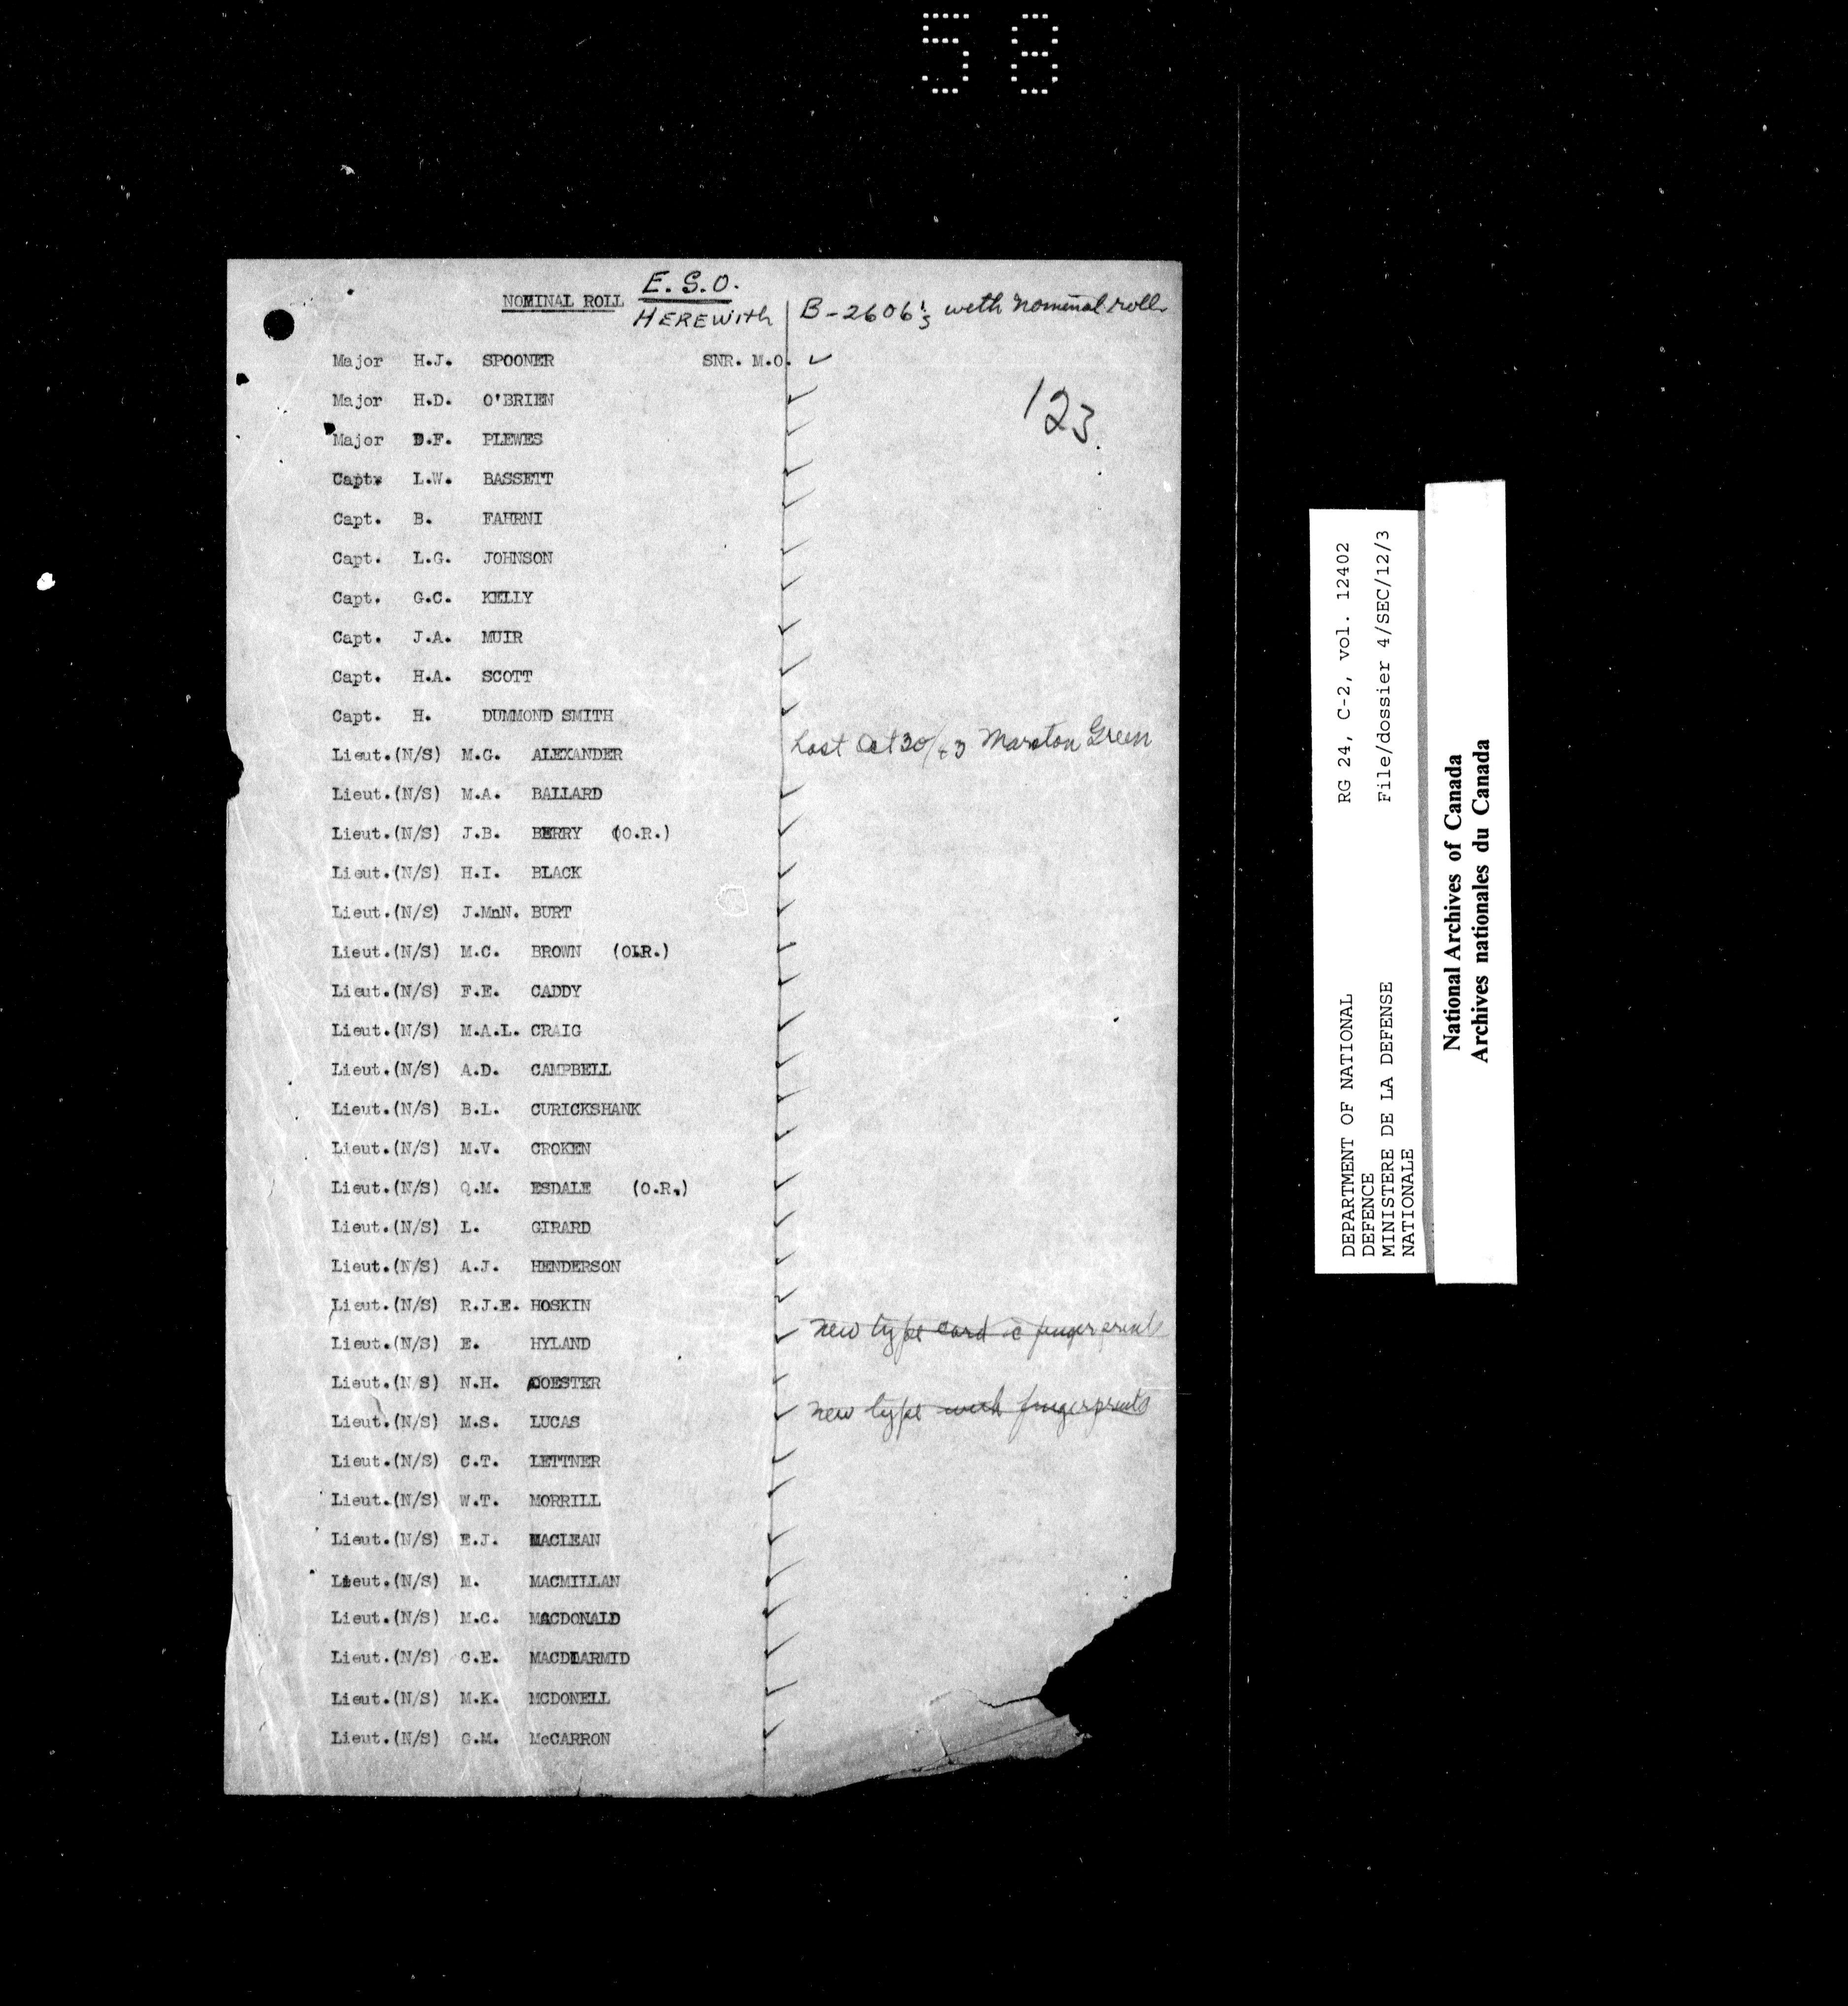 58
E.S.O.
NOMINAL ROLL
HEREWITH
B-2606's with nominal roll
Major H.J. SPOONER SNR. M.O. ✓
Major H.D. O'BRIEN ✓
123.
Major D.F. PLEWES ✓
Capt. L.W. BASSETT ✓
Capt. B. FAHRNI ✓
Capt. L.G. JOHNSON ✓
Capt. G.C. KELLY ✓
Capt. J.A. MUIR ✓
Capt. H.A. SCOTT ✓
Capt. H. DUMMOND SMITH ✓
Lieut.(N/S) M.G. ALEXANDER Lost Oct 30/43 Marston Green
Lieut.(N/S) M.A. BALLARD ✓
Lieut.(N/S) J.B. BERRY (O.R.) ✓
Lieut.(N/S) H.I. BLACK ✓
Lieut.(N/S) J.MnN. BURT ✓
Lieut.(N/S) M.C. BROWN (O.R.) ✓
Lieut.(N/S) F.E. CADDY ✓
Lieut.(N/S) M.A.L. CRAIG ✓
Lieut.(N/S) A.D. CAMPBELL ✓
Lieut.(N/S) B.L. CURICKSHANK ✓
Lieut.(N/S) M.V. CROKEN ✓
Lieut.(N/S) Q.M. ESDALE (O.R.) ✓
Lieut.(N/S) L. GIRARD ✓
Lieut.(N/S) A.J. HENDERSON ✓
Lieut.(N/S) R.J.E. HOSKIN ✓
Lieut.(N/S) E. HYLAND ✓ new type card c fingerprints
Lieut.(N/S) N.H. COESTER ✓
Lieut.(N/S) M.S. LUCAS ✓ new type with fingerprints
Lieut.(N/S) C.T. LETTNER ✓
Lieut.(N/S) W.T. MORRILL ✓
Lieut.(N/S) E.J. MACLEAN ✓
Lieut.(N/S) M. MACMILLAN ✓
Lieut.(N/S) M.C. MACDONALD ✓
Lieut.(N/S) C.E. MACDIARMID ✓
Lieut.(N/S) M.K. MCDONELL ✓
Lieut.(N/S) G.M. McCARRON ✓
DEPARTMENT OF NATIONAL RG 24, C-2, vol. 12402
DEFENCE
MINISTERE DE LA DEFENSE File/dossier 4/SEC/12/3
NATIONALE
National Archives of Canada
Archives nationales du Canada